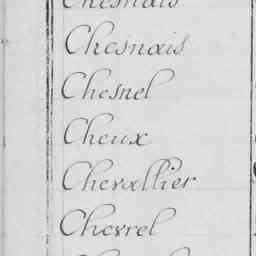 Chesnais
Chesnais
Chesnel
Cheux
Chevallier
Chevrel